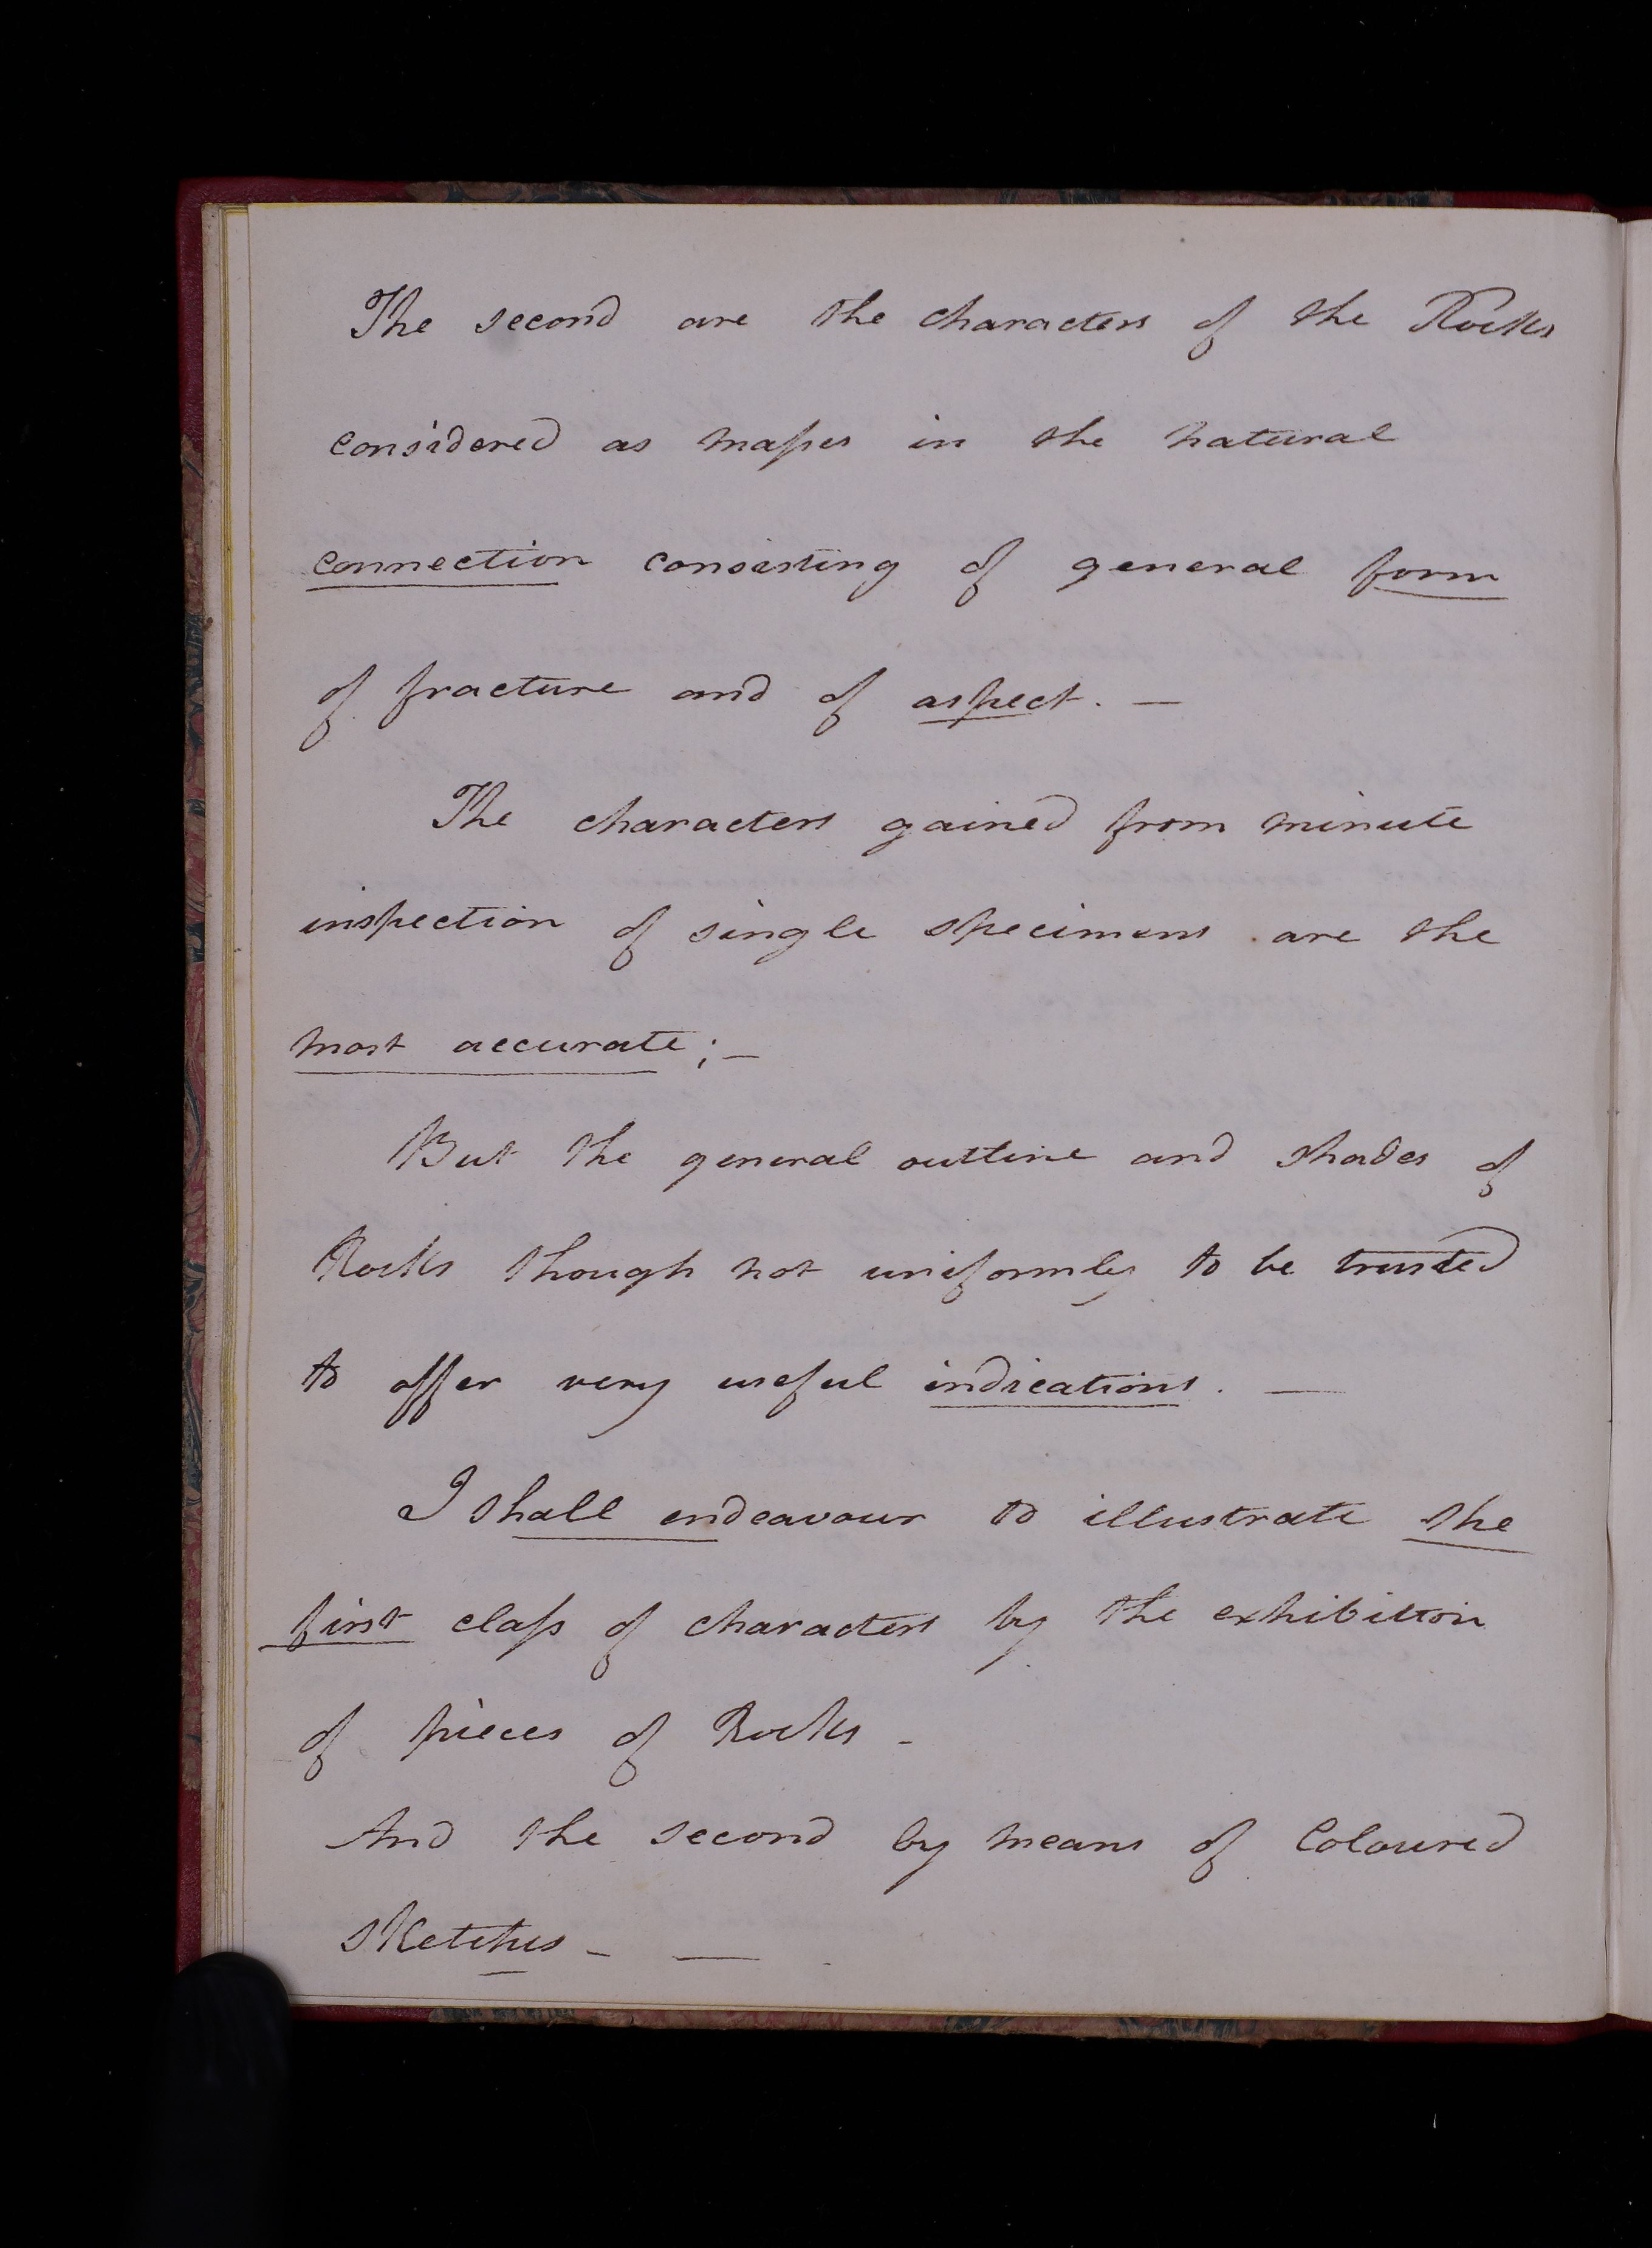 The second are the characters of the Rocks
considered as masses in the natural
connection consisting of general form
of fracture and of aspect. —
The characters gained from minute
inspection of single specimens are the
most accurate; —
But the general outline and shades of
Rocks though not uniformly to be trusted
to offer very useful indications. —
I shall endeavour to illustrate the
first class of characters by the exhibition
of pieces of Rocks -
And the second by means of Coloured
sketches - —